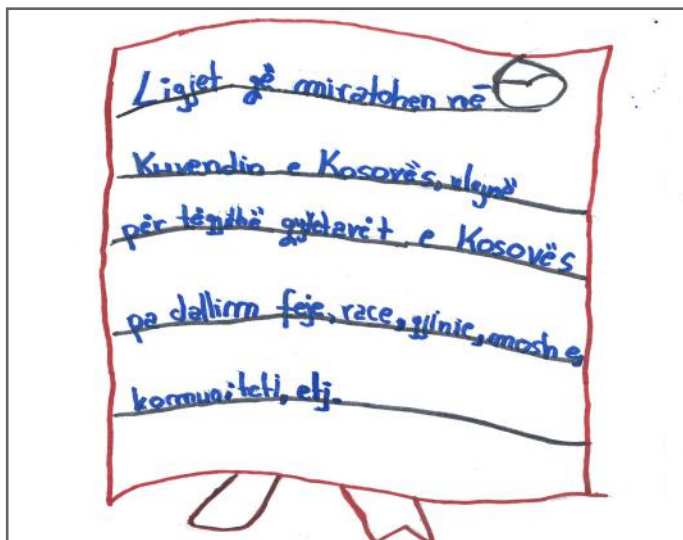 Ligjet që miratohen në
Kuvendin e Kosovës, vlejnë
për tëgjithë qytetarët e Kosovës
pa dallim feje, race, gjinie, moshe,
komuniteti, etj.